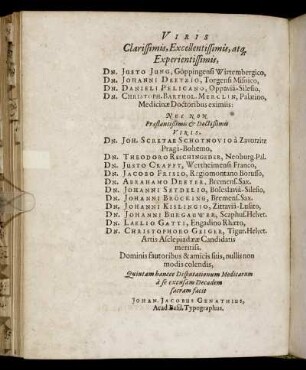 VIRIS
Clarissimis, Excellentissimis, atq,
Experientissimis,
DN. JUSTO JUNG, Göppingensi Wirtembergico,
DN. JOHANNI DEETZIO, Torgensi Misnico,
DN. DANIELI PELICANO, Oppavia-Silesio,
DN. CHRISTOPH. BARTHOL. MERCLIN, Palatino,
Medicinæ Doctoribus eximiis:
NEC NON
Præstantissimis & Doctissimis
VIRIS:
DN. JOH. SCRETAE SCHOTNOVIO à Zavorzitz
Praga-Bohemo,
DN. THEODORO Neoburg. Pal.
DN. JUSTO CRAFFT, Wertheimensi Franco,
DN. JACOBO FRISIO, Regiomontano Boruso,
DN. ABRAHAMO Bremens. Sax.
DN. JOHANNI SEYDELIO, Boleslaviâ-Silesio,
DN. JOHANNI BRÜCKING, Bremens. Sax.
DN. JOHANNI KISLINGIO, Zittaviâ-Lusato,
DN. JOHANNI Scaphus. Helvet.
DN. LAELIO GATTI, Engadino Rhæto,
DN. CHRISTOPHORO GEIGER, Tigur. Helvet.
Artis Asclepiadææ Candidatis
meritiss.
Dominis fautoribus & amicis suis, nullis non
modis colendis,
Quintam hancce Disputationum Medicarum
à se excusam Decadem
sacram facit
JOHAN. JACOBUS GENATHIUS,
Acad. Basil. Typographus.